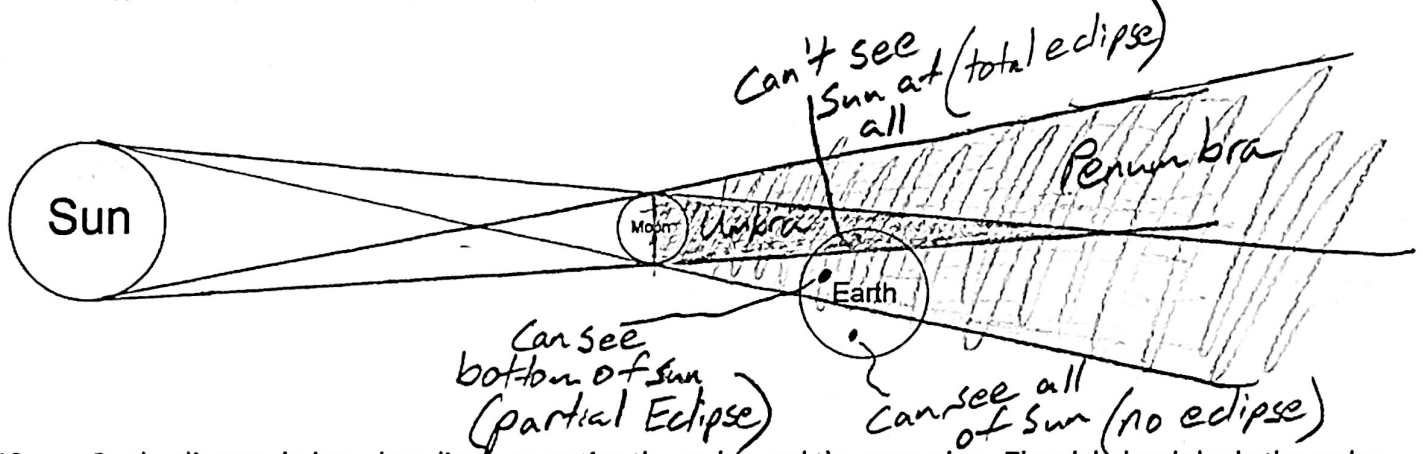 Can't see
Sun at (total eclipse)
all
Penumbra
Sun
Moon
Umbra
Earth
Can see
bottom of sun
(partial Eclipse)
Can see all
of Sun (no eclipse)